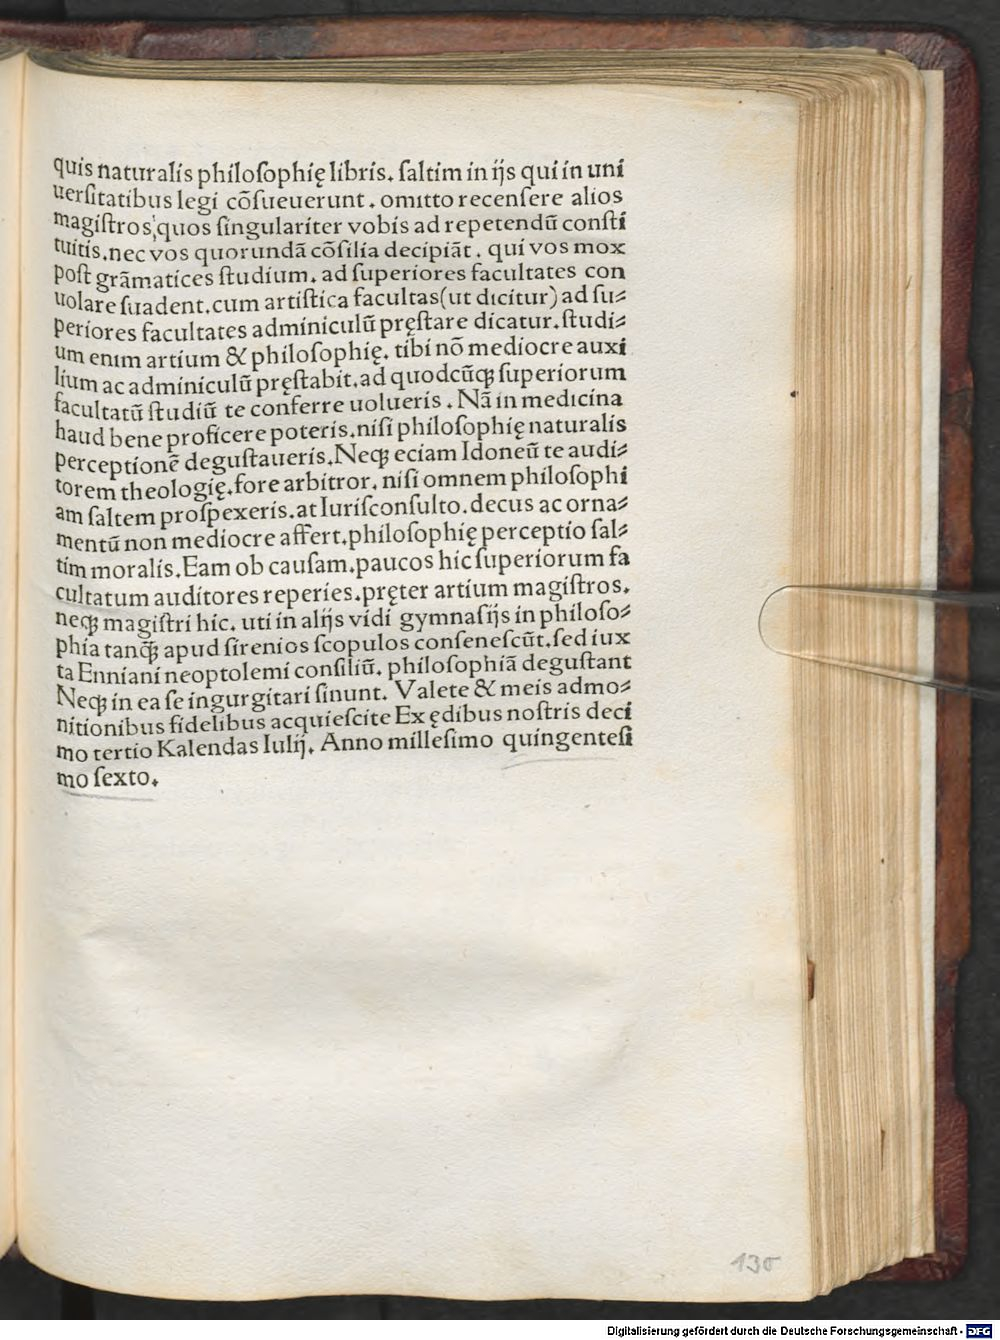 quis naturalis philoſophię libris. ſaltim in ijs qui in uni
uerſitatibus legi cõſueuerunt. omitto recenſere alios
magiſtros, quos ſingulariter vobis ad repetendũ conſti
tuitis. nec vos quorundã cõſilia decipiãt. qui vos mox
poſt grãmatices ſtudium. ad ſuperiores facultates con
uolare ſuadent. cum artiſtica facultas (ut dicitur) ad ſu⸗
periores facultates adminiculũ pręſtare dicatur. ſtudi⸗
um enim artium & philoſophię. tibi nõ mediocre auxi
lium ac adminiculũ pręſtabit. ad quodcũqꝫ ſuperiorum
facultatũ ſtudiũ te conferre uolueris. Nã in medicina
haud bene proficere poteris. niſi philoſophię naturalis
perceptionẽ deguſtaueris. Neqꝫ eciam Idoneũ te audi⸗
torem theologię. fore arbitror. niſi omnem philoſophi
am ſaltem proſpexeris. at Iuriſconſulto. decus ac orna⸗
mentũ non mediocre affert. philoſophię perceptio ſal⸗
tim moralis. Eam ob cauſam. paucos hic ſuperiorum fa
cultatum auditores reperies. pręter artium magiſtros.
neqꝫ magiſtri hic. uti in alijs vidi gymnaſijs in philoſo⸗
phia tanqꝫ̃ apud ſirenios ſcopulos conſeneſcũt. ſed iux
ta Enniani neoptolemi conſiliũ. philoſophiã deguſtant
Neqꝫ in ea ſe ingurgitari ſinunt. Valete & meis admo⸗
nitionibus fidelibus acquieſcite Ex ędibus noſtris deci
mo tertio Kalendas Iulij. Anno milleſimo quingenteſi
mo ſexto.
130
Digitalisierung gefördert durch die Deutsche Forschungsgemeinschaft - DFG